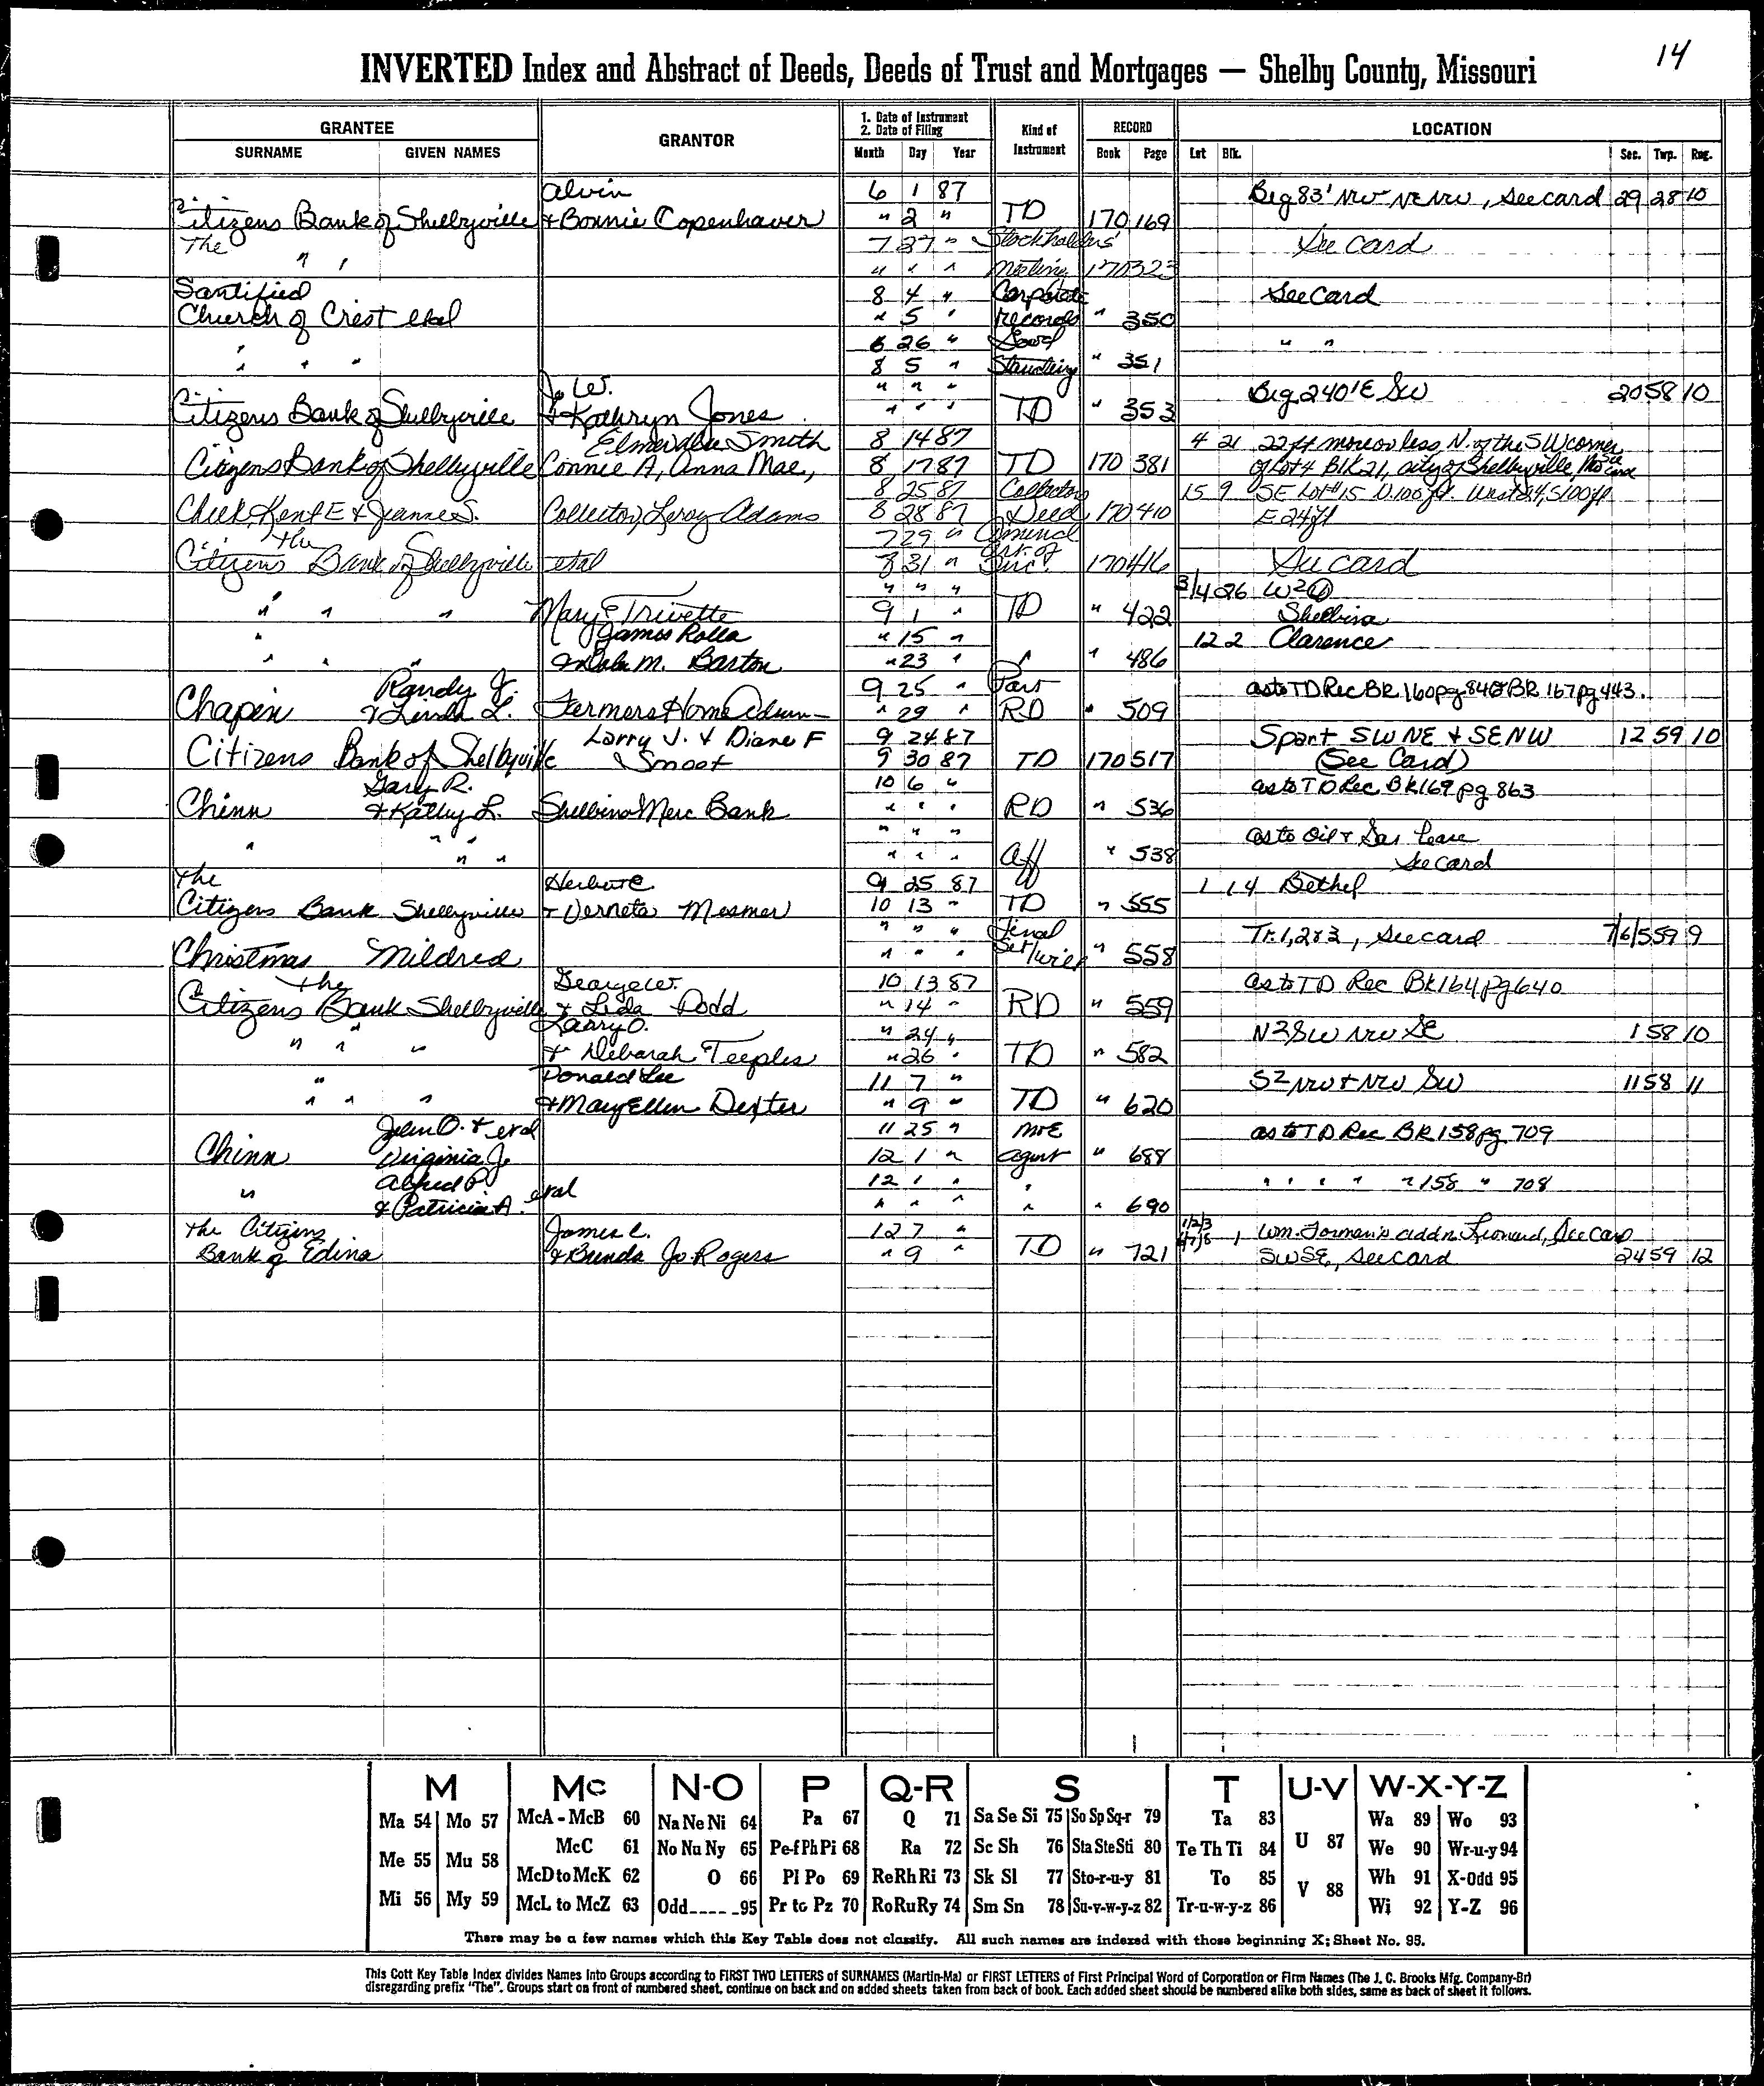 14
INVERTED Index and Abstract of Deeds, Deeds of Trust and Mortgages — Shelby County, Missouri
GRANTEE GRANTOR 1. Date of Instrument 2. Date of Filing Kind of Instrument RECORD LOCATION
SURNAME GIVEN NAMES Month Day Year Book Page Lot Blk. Sec. Twp. Rng.
Alvin 6 1 87 Beg 83' NW NE NW, See card 29 28 10
Citizens Bank of Shelbyville & Bonnie Copenhaver " 2 " TD 170 169
The 7 27 " Stockholders' See Card
" " " " " Meeting 170 323
Santified 8 4 " Corporate See Card
Church of Crist etal " 5 " records " 350
6 26 " Good " "
" " " 8 5 " Standing " 351
Jo W. " " " Beg 240' E SW 20 58 10
Citizens Bank of Shelbyville & Kathryn Jones " " " TD " 353
Smith 8 14 87 4 21 22 ft more or less N. of the SW corner
Citizens Bank of Shellyville Connie A, Anna Mae, 8 17 87 TD 170 381 of Lot 4 Blk 21, city of Shelbyville, Mo See Card
8 25 87 Collectors 15 9 SE Lot #15 N.100 ft. West 24, S100 ft
Cheek, Kent E & Jeanne S. Collector, Leroy Adams 8 28 87 Deed 170 410 E 24 ft
The 7 29 " Amend
Citizens Bank of Shelbyville etal 8 31 " Art. of Inc. 170 416 See card
" " " 3/4 26 W2
" " " Mary E Trivette 9 1 " TD " 422 Shelbina
" James Rolla " 15 " 12 2 Clarence
" " " & M. Barton " 23 " " " 486
Randy J. 9 25 " Part as to TD Rec BK 160 pg 84 & BK 167 pg 443.
Chapin & Linda L. Farmers Home Adum- " 29 " RD " 509
Larry J. & Diane F 9 24 87 S part SW NE & SE NW 12 59 10
Citizens Bank of Shelbyville Smoot 9 30 87 TD 170 517 (See Card)
Gary R. 10 6 " as to TD Rec Bk 169 pg 863
Chinn & Kathy L. Shelbina Merc Bank " " " RD " 536
" " " " " " as to Oil & Gas Lease
" " " " " Aff " 538 See card
The Herbert C 9 25 87 1 14 Bethel
Citizens Bank Shelbyville & Verneta Mesmer 10 13 " TD " 555
" " " Final Tr. 1, 2 & 3, See card 7/6/5 59 9
Christmas Mildred " " " Set/ " 558
The George W. 10 13 87 as to TD Rec Bk 164 pg 640
Citizens Bank Shelbyville & Leda Dodd " 14 " RD " 559
" Larry O. " 24 " N2 SW NW SE 1 58 10
" " " & Deborah Teeples " 26 " TD " 582
" Donald Lee 11 7 " S2 NW & NW SW 11 58 11
" " " & Mary Ellen Dexter " 9 " TD " 620
John O. & etal 11 25 " as to TD Rec BK 158 pg 709
Chinn Virginia J. 12 1 " agmt " 688
Alfred P etal 12 1 " " " " " " " 158 " 708
" & Patricia A. " " " " " 690
The Citizens James C. 12 7 " 1/2/3 6/7/8 1 Wm. Forman's addn. Leonard, See Card
Bank of Edina & Brenda Jo Rogers " 9 " TD " 721 SW SE, See card 24 59 12
M Mc N-O P Q-R S T U-V W-X-Y-Z
Ma 54 Mo 57 McA - McB 60 Na Ne Ni 64 Pa 67 Q 71 Sa Se Si 75 So Sp Sq-r 79 Ta 83 U 87 Wa 89 Wo 93
Me 55 Mu 58 McC 61 No Nu Ny 65 Pe-f Ph Pi 68 Ra 72 Sc Sh 76 Sta Ste Sti 80 Te Th Ti 84 We 90 Wr-u-y 94
McD to McK 62 O 66 Pl Po 69 Re Rh Ri 73 Sk Sl 77 Sto-r-u-y 81 To 85 V 88 Wh 91 X-Odd 95
Mi 56 My 59 McL to McZ 63 Odd_ _ _ _ _95 Pr to Pz 70 Ro Ru Ry 74 Sm Sn 78 Su-v-w-y-z 82 Tr-u-w-y-z 86 Wi 92 Y-Z 96
There may be a few names which this Key Table does not classify. All such names are indexed with those beginning X; Sheet No. 95.
This Cott Key Table Index divides Names into Groups according to FIRST TWO LETTERS of SURNAMES (Martin-Ma) or FIRST LETTERS of First Principal Word of Corporation or Firm Names (The J. C. Brooks Mfg. Company-Br)
disregarding prefix "The". Groups start on front of numbered sheet, continue on back and on added sheets taken from back of book. Each added sheet should be numbered alike both sides, same as back of sheet it follows.